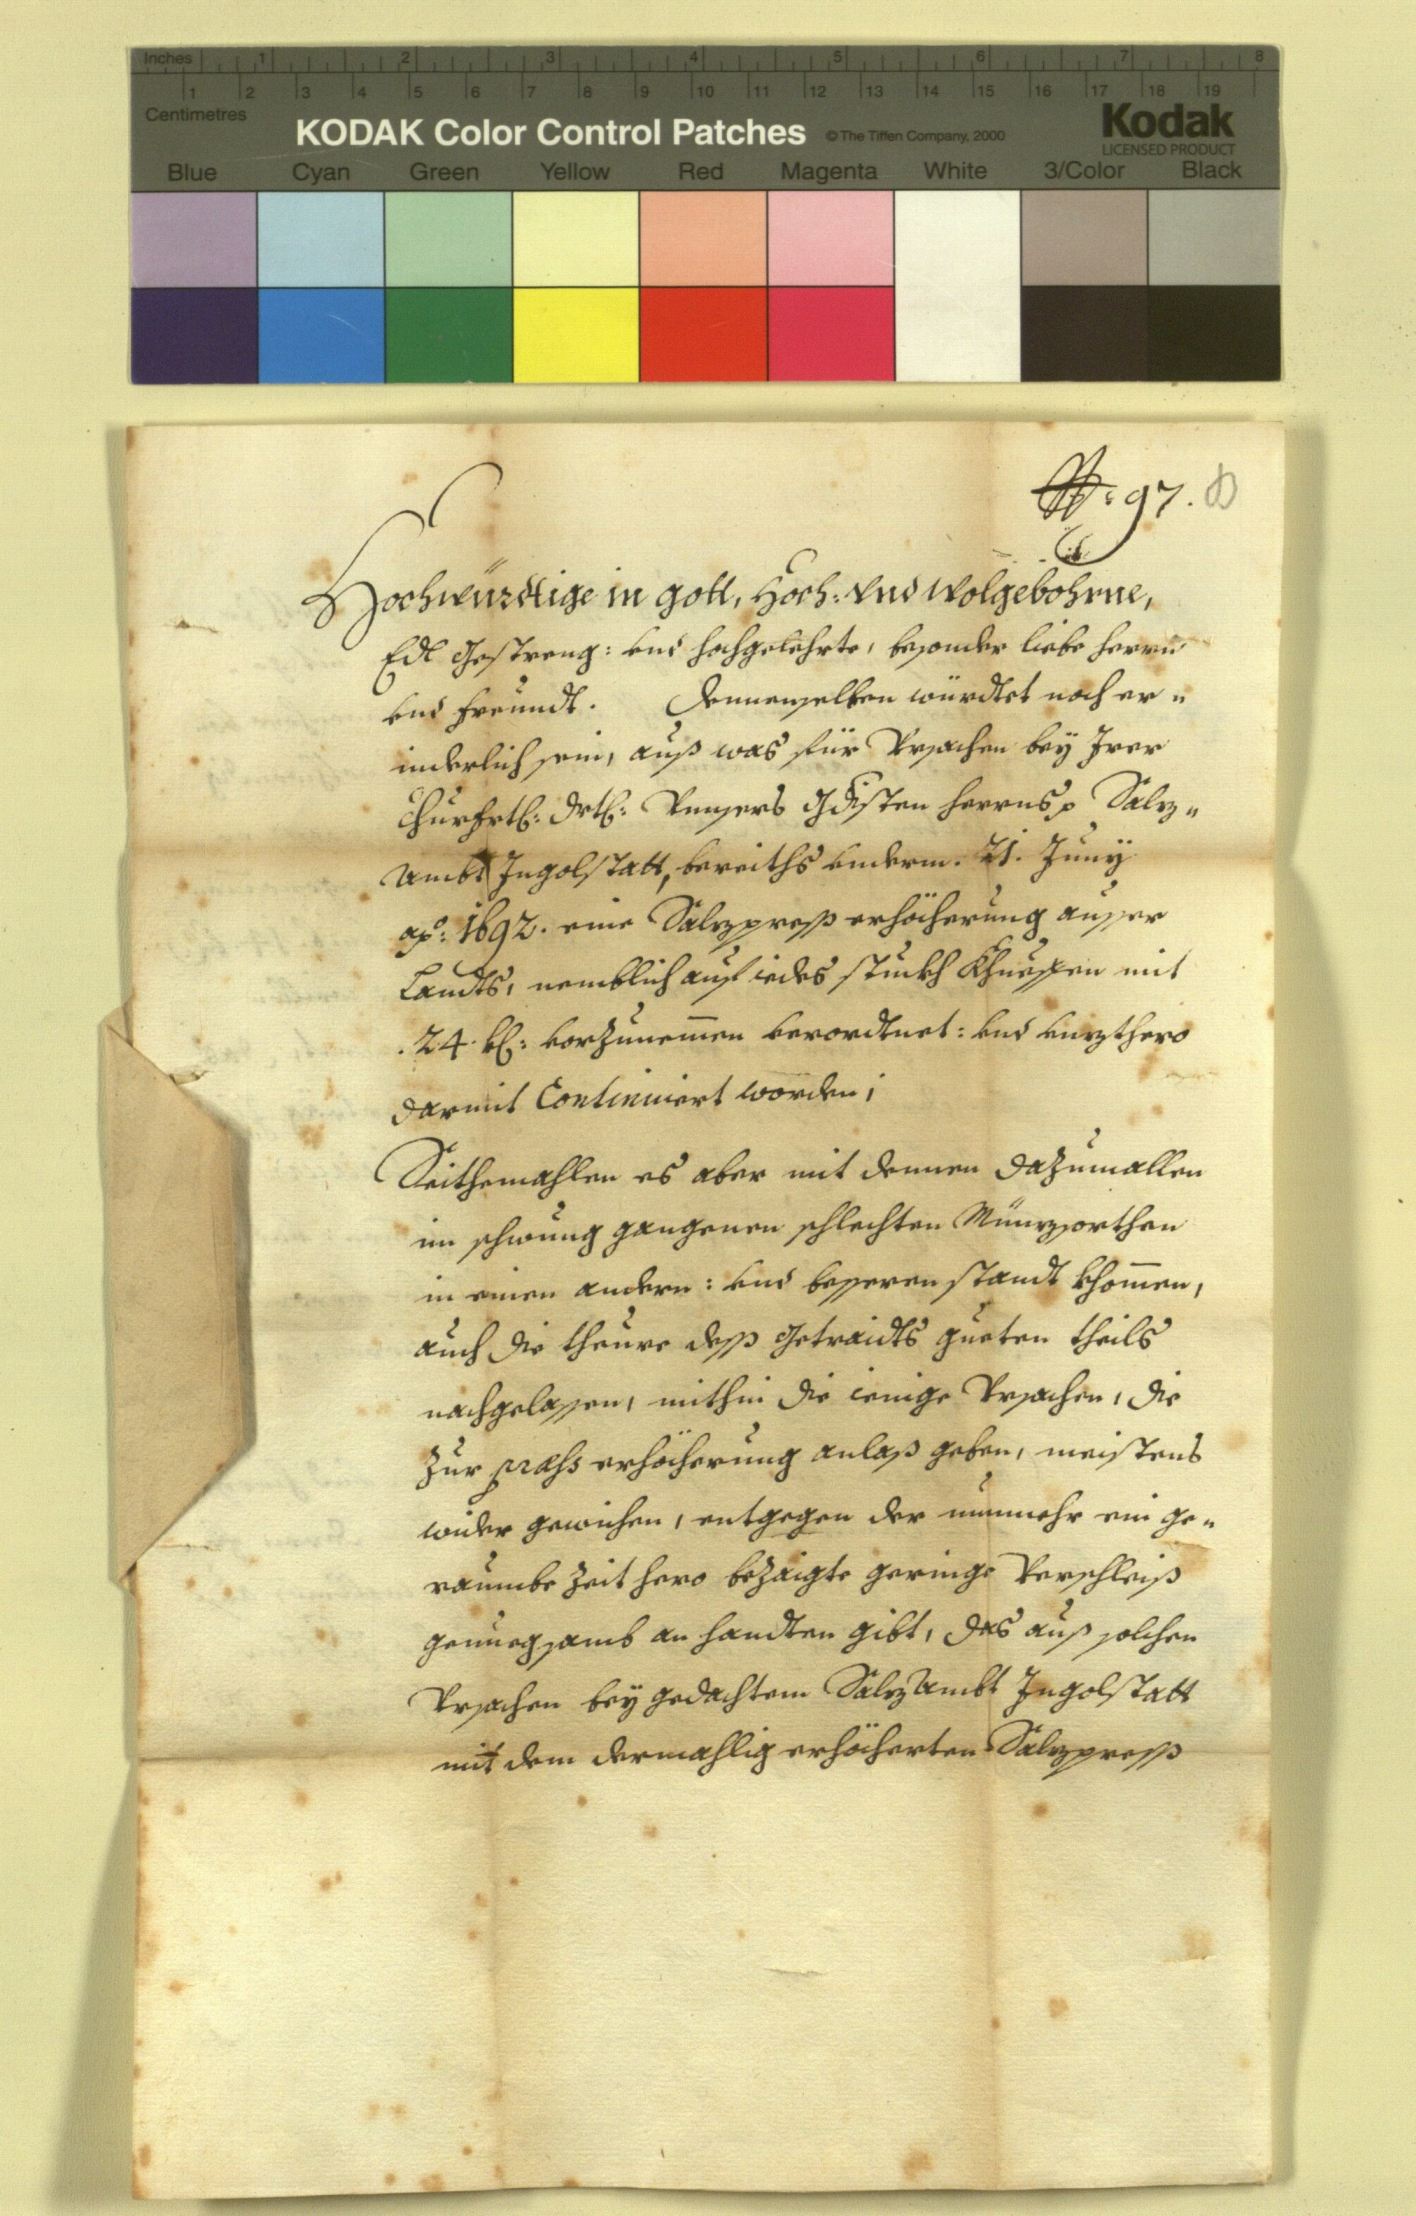 Inches 1 2 3 4 5 6 7 8
1 2 3 4 5 6 7 8 9 10 11 12 13 14 15 16 17 18 19
Centimetres
KODAK Color Control Patches © The Tiffen Company, 2000 Kodak
LICENSED PRODUCT
Blue Cyan Green Yellow Red Magenta White 3/Color Black
97.
Hochwürdtige in Gott, Hoch: Vnd Wolgebohrne,
Edl Gestreng: vnd hochgelehrte, besonder liebe herrn
vnd freundt. Dennenselben würdtet noch er„
inderlich sein, auß was für Vrsachen bey Irer
Churfrtl: Drtl: Vnnsers Gdisten herrns p Salz„
Ambt Ingolstatt, bereiths vnderm. 21. Juny
ao: 1692. eine Salzpreß erhöcherung ausser
Landts, nemblich auf iedes stuckh Khueffen mit
.24. kr: vorzunemmen verordtnet: vnd vnzthero
darmit Continuiert worden;
Seithemahlen es aber mit dennen dazumallen
im schwung gangenen schlechten Münzsorthen
in einen andern: vnd besseren standt khommen,
auch die theure deß Getraidts gueten theils
nachgelassen, mithin die ienige Vrsachen, die
zur præss erhöcherung anlaß geben, meistens
wider gewichen, entgegen der nunmehr ein ge„
raumbe Zeit hero bezaigte geringe Verschleiß
genuegsamb an handten gibt, das auß solchen
Vrsachen bey gedachtem Salz Ambt Ingolstatt
mit dem dermahlig erhöcherten Salzpreß